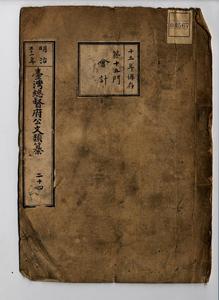 十五年保存
第十五門
會計
明治
三十一年
臺灣總督府公文類纂
二十四
04567